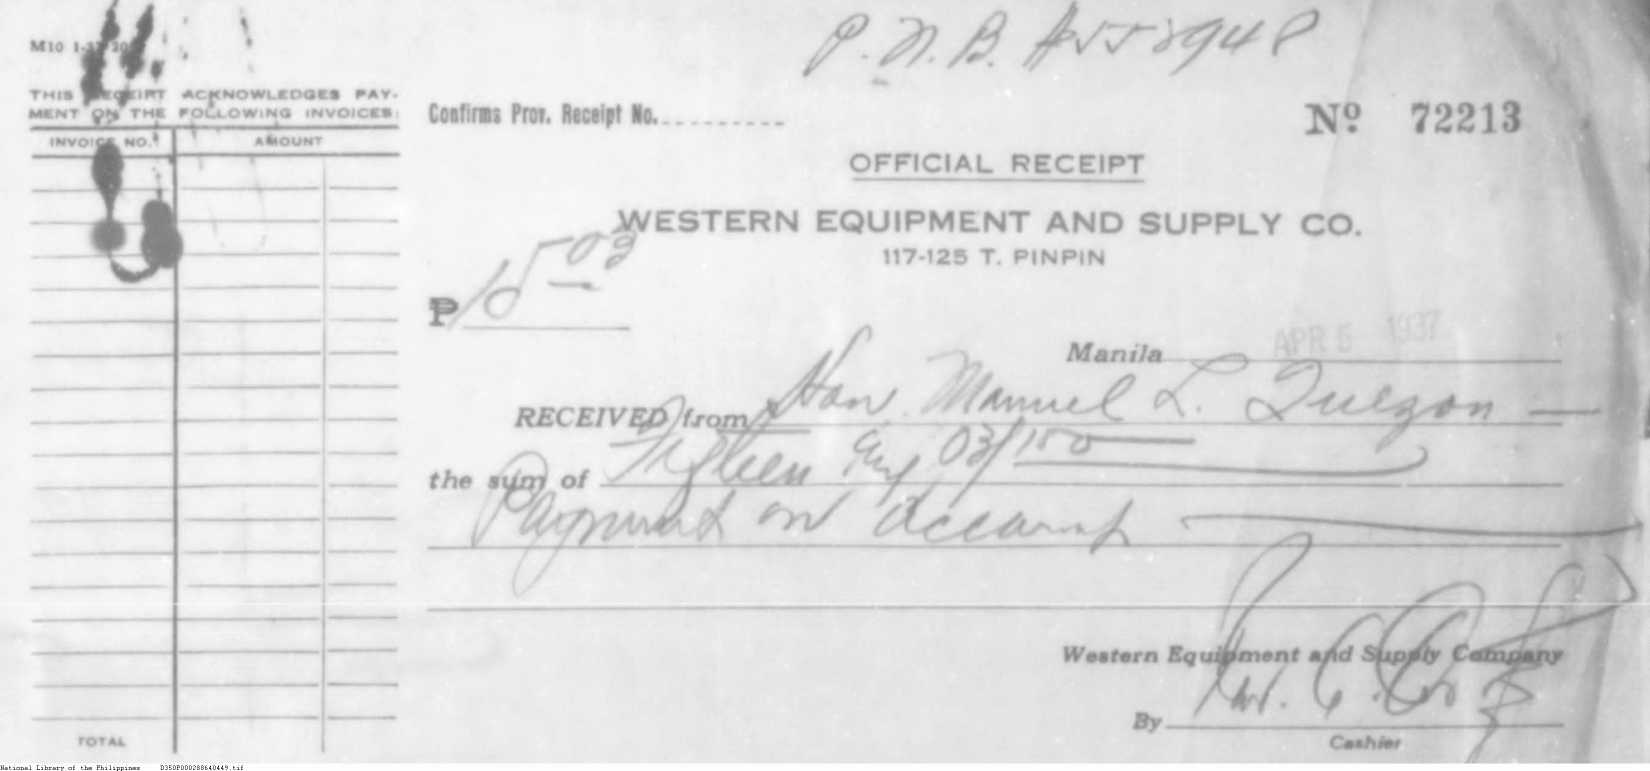 P. N. B.
M10 1-37
THIS RECEIPT ACKNOWLEDGES PAY-
MENT ON THE FOLLOWING INVOICES:
INVOICE NO. AMOUNT
TOTAL
Confirms Prov. Receipt No.
No. 72213
OFFICIAL RECEIPT
WESTERN EQUIPMENT AND SUPPLY CO.
117-125 T. PINPIN
₱ 15-03
Manila APR 5 1937
RECEIVED from Hon. Manuel L. Quezon
the sum of Fifteen & 03/100
Payment on Account
Western Equipment and Supply Company
By
Cashier
National Library of the Philippines D350P000288640449.tif